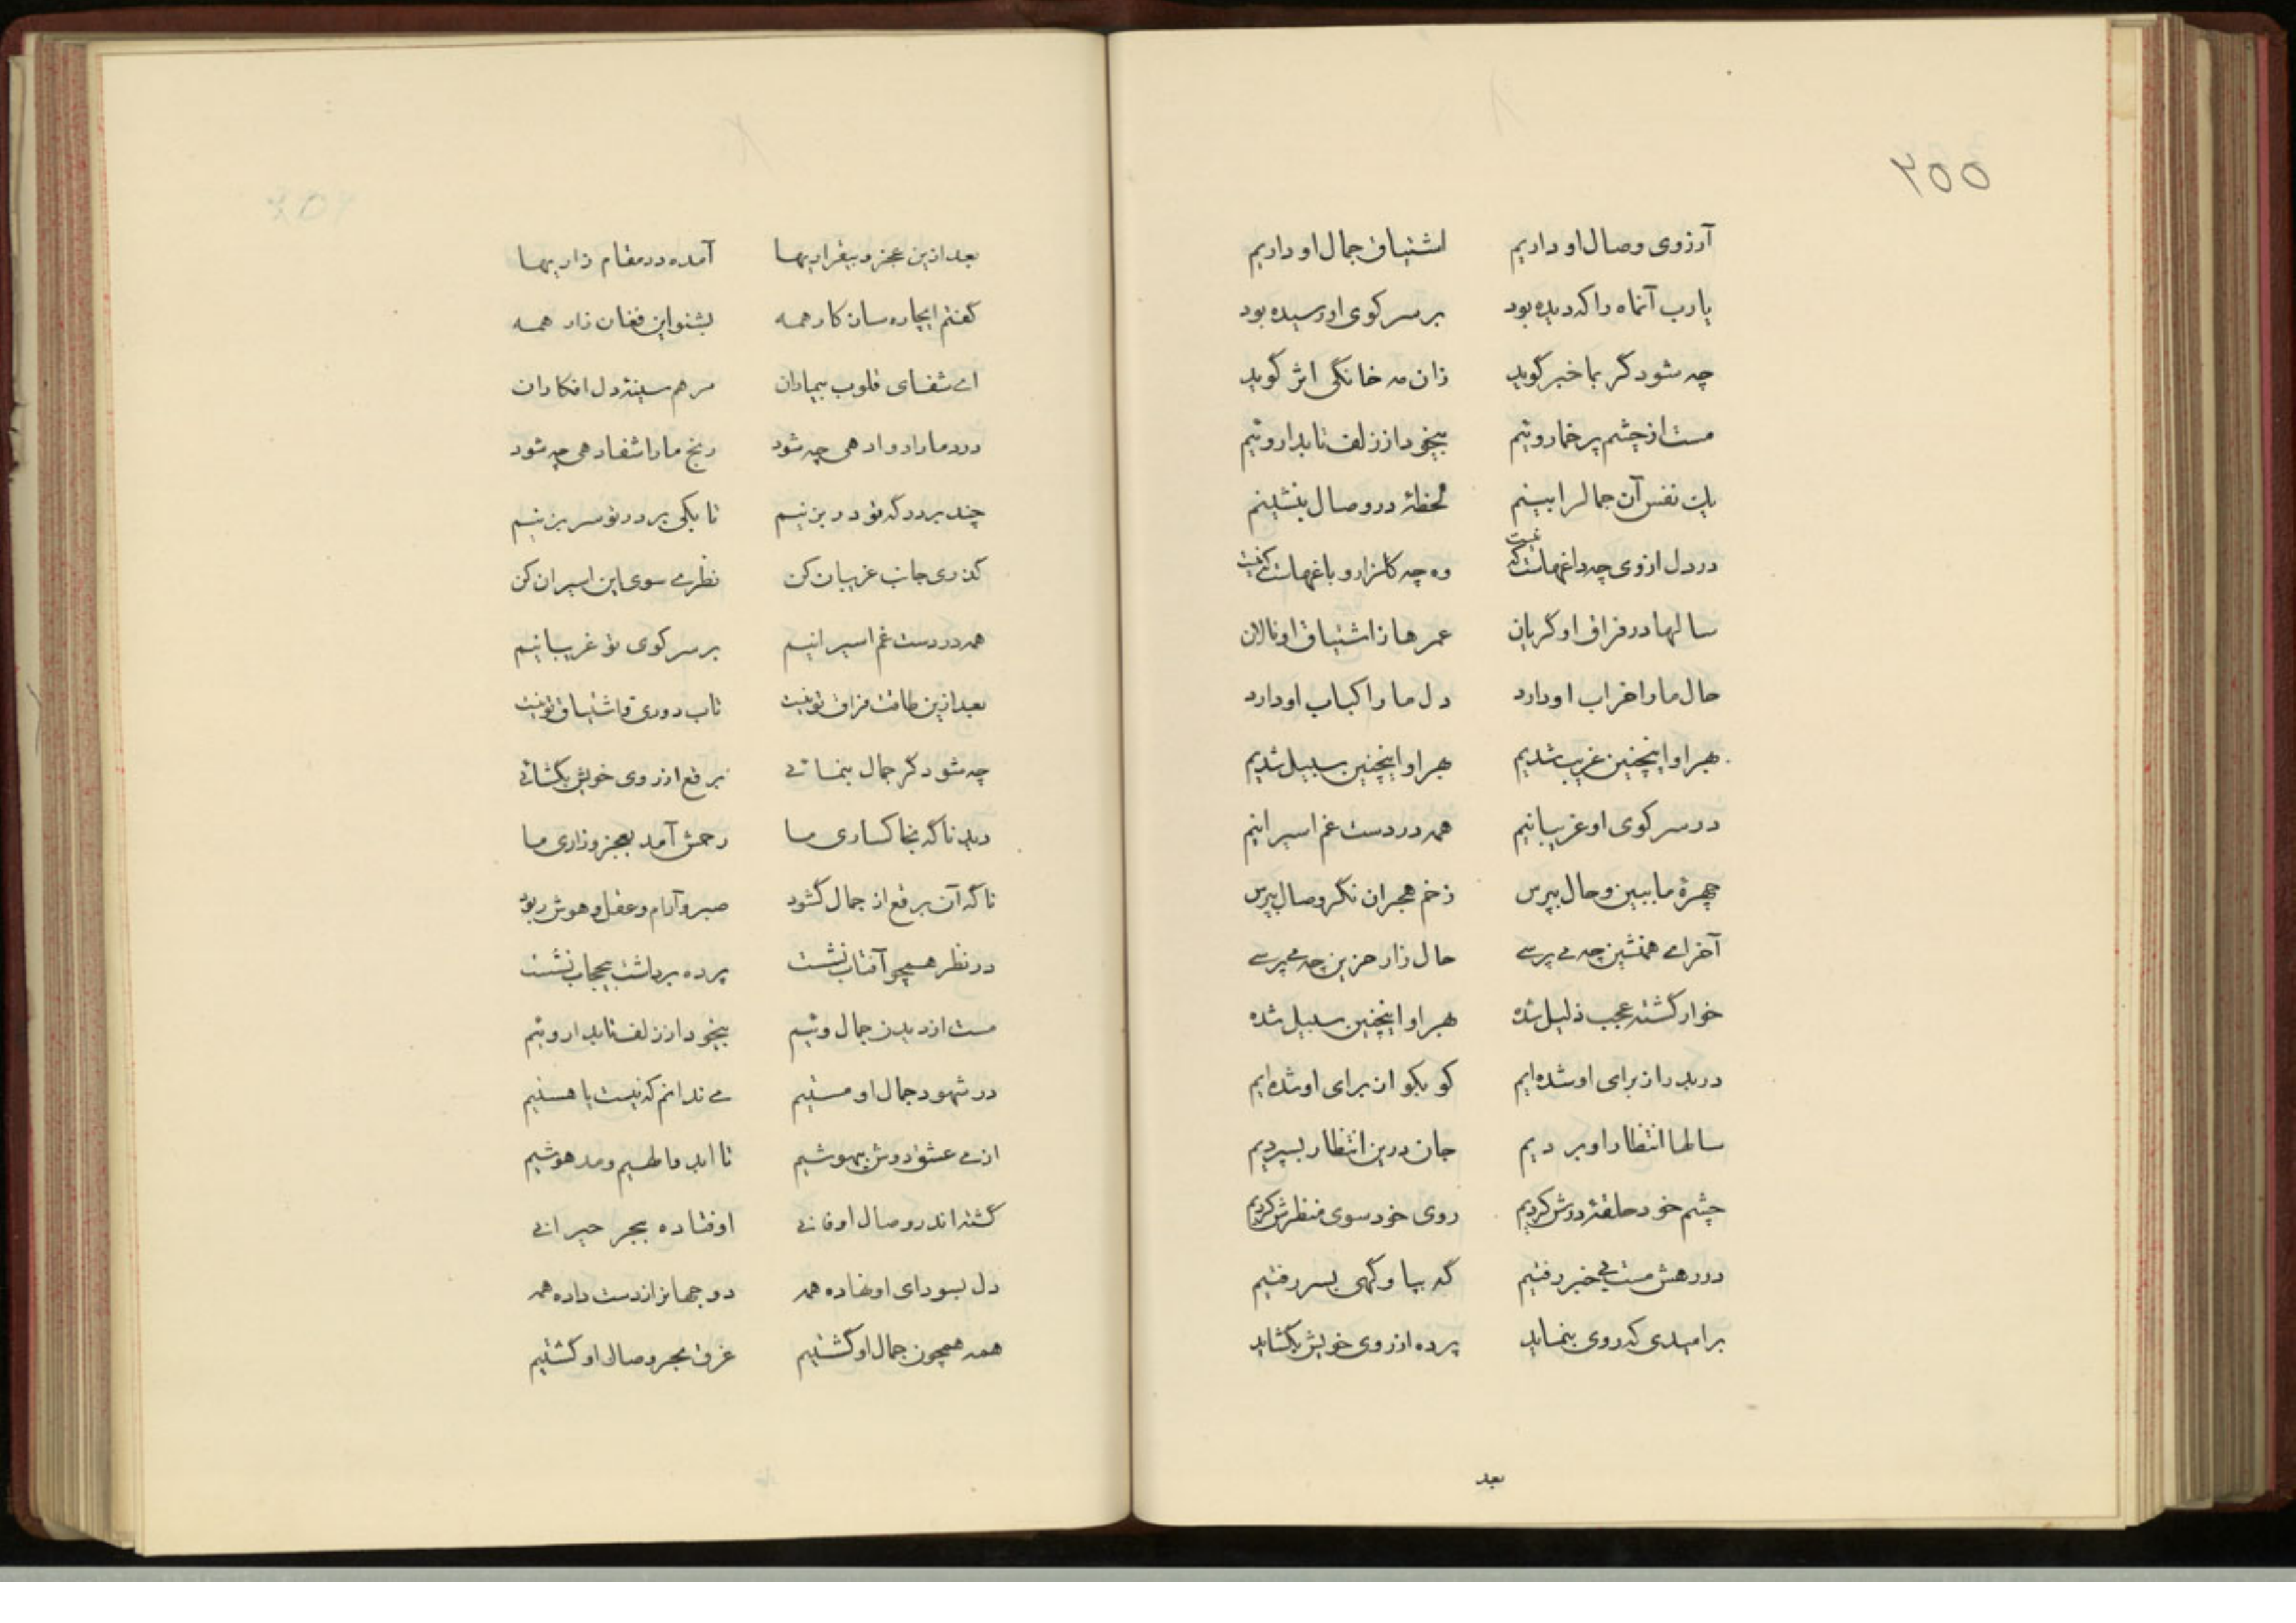 ۲۵۵
آرزوی وصال او داریم اشتیاق جمال او داریم
یارب آنماه را که دیده بود بر سر کوی او رسیده بود
چه شود گر بما خبر گوید زان مه خانگی اثر گوید
مست از چشم پر خمار ویئم بیخود از زلف تابدار ویئم
یک نفس آن جمالرا بینم لحظهٔ در وصال بنشینم
در دل از وی چه داغهاست که نیست وه چه گلزار و باغهاست که نیست
سالها در فراق او گریان عمرها ز اشتیاق او نالان
حال ما را خراب او دارد دل ما را کباب او دارد
بهر او اینچنین غریب شدیم بهر او اینچنین سبیل شدیم
در سر کوی او غریبانیم همه در دست غم اسیرانیم
چهرهٔ ما ببین و حال بپرس زخم هجران نگر وصال بپرس
آخر اے همنشین چه مے پرسے حال زار حزین چه مے پرسے
خوار گشته عجب ذلیل شده بهر او اینچنین سبیل شده
دربدر از برای او شده‌ایم کو بکو از برای او شده‌ایم
سالها انتظار او بردیم جان درین انتظار بسپردیم
چشم خود حلقهٔ درش کردیم روی خود سوی منظرش کردیم
در رهش مست بے خبر رفتیم گه بپا و گهی بسر رفتیم
بر امیدی که روی بنماید پرده از روی خویش بگشاید
بعد
بعد ازین عجز و بیقراریها آمده در مقام زاریها
گفتم ایچاره سان کار همه بشنو این فغان زار همه
اے شفای قلوب بیماران مرهم سینهٔ دل افکاران
درد ما را دوا دهی چه شود رنج ما را شفا دهی چه شود
چند بر درگه تو در بزنیم تا بکی بر در تو سر بزنیم
گذری جانب غریبان کن نظرے سوی این اسیران کن
همه در دست غم اسیرانیم بر سر کوی تو غریبانیم
بعد ازین طاقت فراق تو نیست تاب دوری و اشتیاق تو نیست
چه شود گر جمال بنمائے برقع از روی خویش بگشائے
دید ناگه بخاکساری ما رحمش آمد بعجز و زاری ما
ناگه آن برقع از جمال گشود صبر و آرام و عقل و هوش ربود
در نظر همچو آفتاب نشست پرده برداشت بیحجاب نشست
مست از دیدن جمال ویئم بیخود از زلف تابدار ویئم
در شهود جمال او مستیم مے ندانم که نیست یا هستیم
از مے عشق دوش بیهوشیم تا ابد والهیم و مدهوشیم
گشته اندر وصال او فانے اوفتاده ببحر حیرانے
دل بسودای او نهاده همه دو جهانرا ز دست داده همه
همه همچون جمال او گشتیم غرق بحر وصال او گشتیم